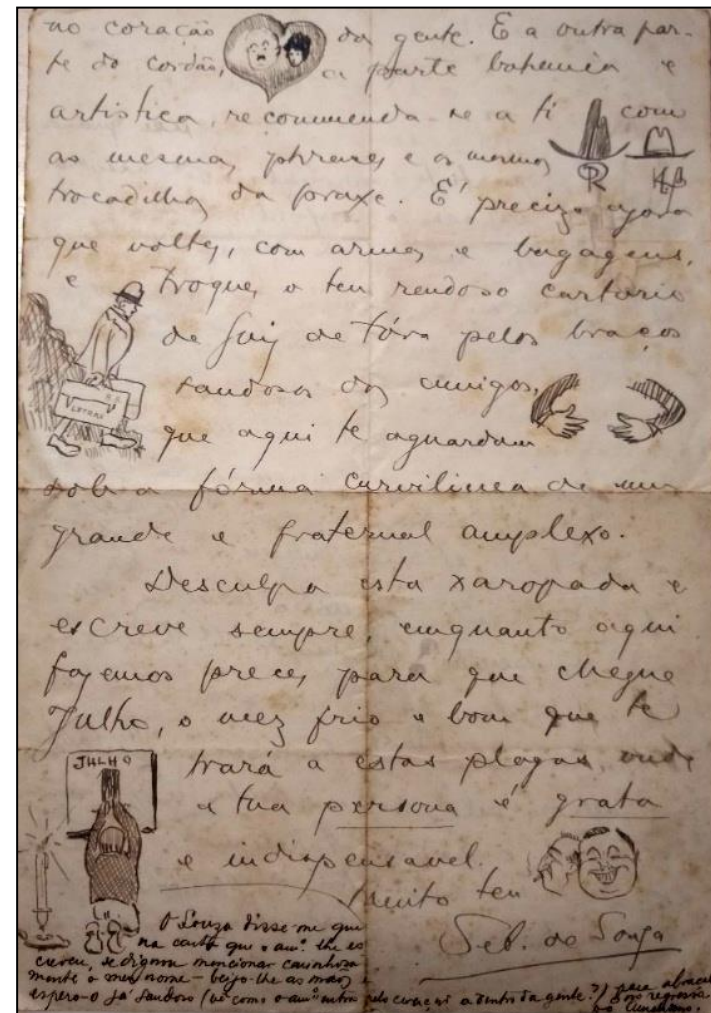 no coração da gente. E a outra par-
te do cordão, a parte bohemia e
artistica, recommenda-se a ti com
as mesmas phrases e os mesmos
trocadilhos da praxe. É preciso agora
que voltes, com armas e bagagens,
e troques o teu rendoso cartorio
de Juiz de Fóra pelos braços
saudosos dos amigos,
que aqui te aguardam
sob a fórma curvilinea de um
grande e fraternal amplexo.
Desculpa esta xaropada e
escreve sempre, emquanto aqui
fazemos preces para que chegue
Julho, o mez frio e bom que te
JULHO
trará a estas plagas, onde
a tua persona é grata
e indispensavel.
Muito teu
Seb. de Souza
O Souza disse-me que
na carta que o amº. lhe es
creveu, se dignou mencionar carinhosa
mente o meu nome – beijo-lhe as mãos e
espero-o já saudoso (vê como o amº entra pelo coração a dentro da gente?) para abraçal